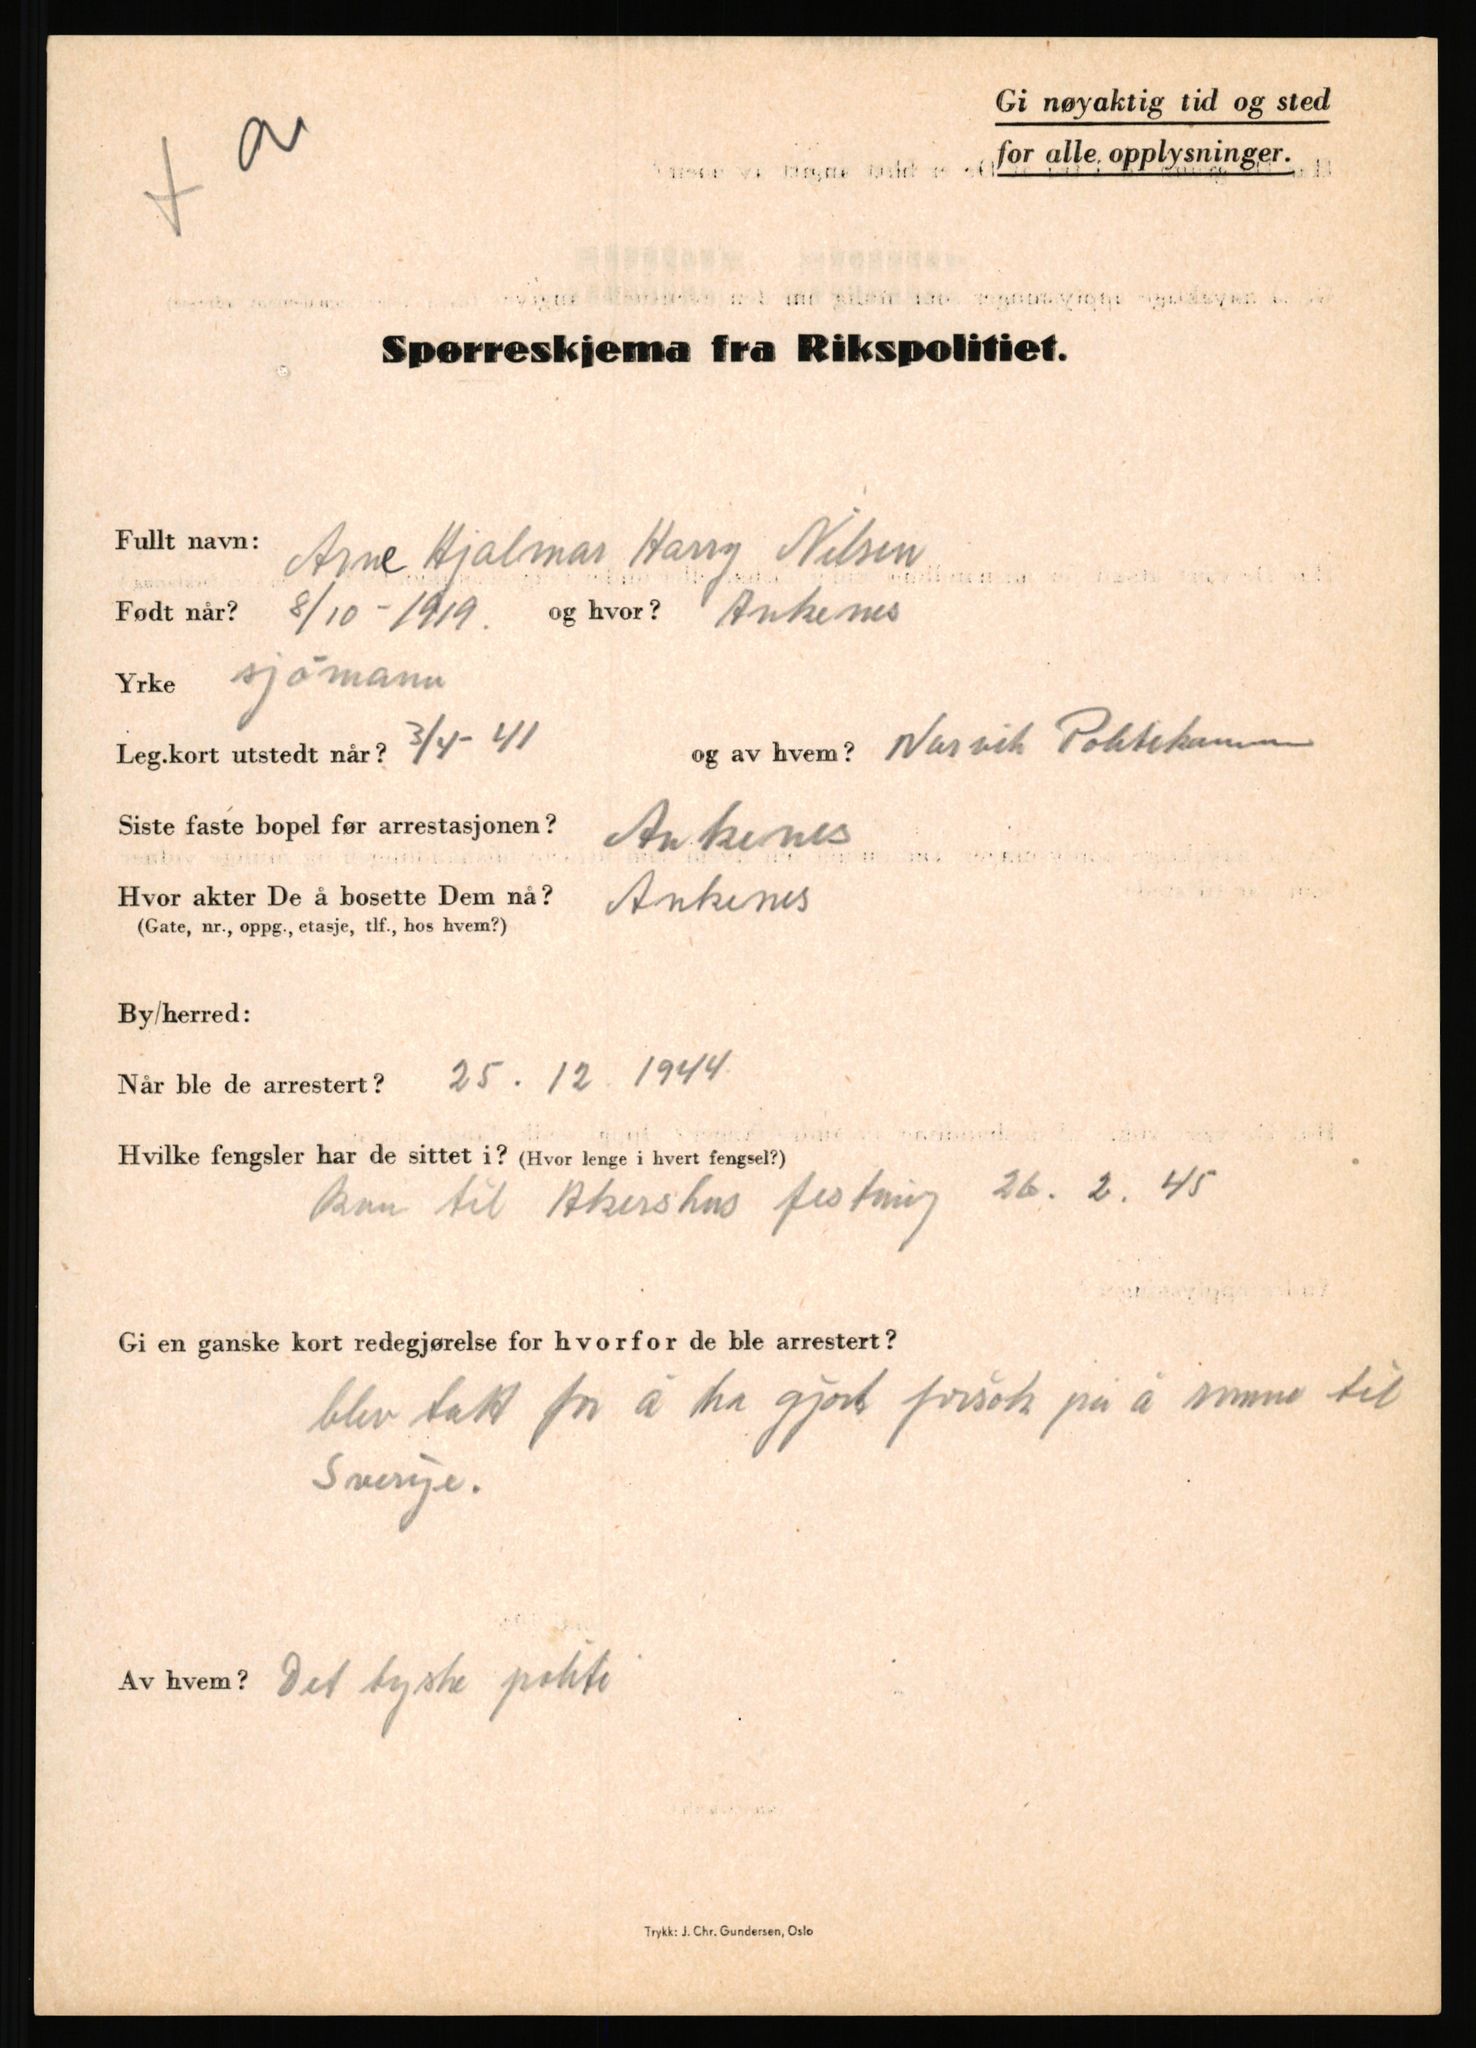 Gi nøyaktig tid og sted
for alle opplysninger.
+ a
Spørreskjema fra Rikspolitiet.
Fullt navn: Arne Hjalmar Harry Nilsen
Født når? 8/10-1919. og hvor? Ankenes
Yrke sjömann
Leg.kort utstedt når? 3/4-41 og av hvem? Narvik Politikammer
Siste faste bopel før arrestasjonen? Ankenes
Hvor akter De å bosette Dem nå? Ankenes
(Gate, nr., oppg., etasje, tlf., hos hvem?)
By/herred:
Når ble de arrestert? 25. 12 1944
Hvilke fengsler har de sittet i? (Hvor lenge i hvert fengsel?)
kom til Akershus festning 26. 2. 45
Gi en ganske kort redegjørelse for hvorfor de ble arrestert?
blev tatt for å ha gjort forsök på å rømme til
Sverige.
Av hvem? Det tyske politi
Trykk: J. Chr. Gundersen, Oslo